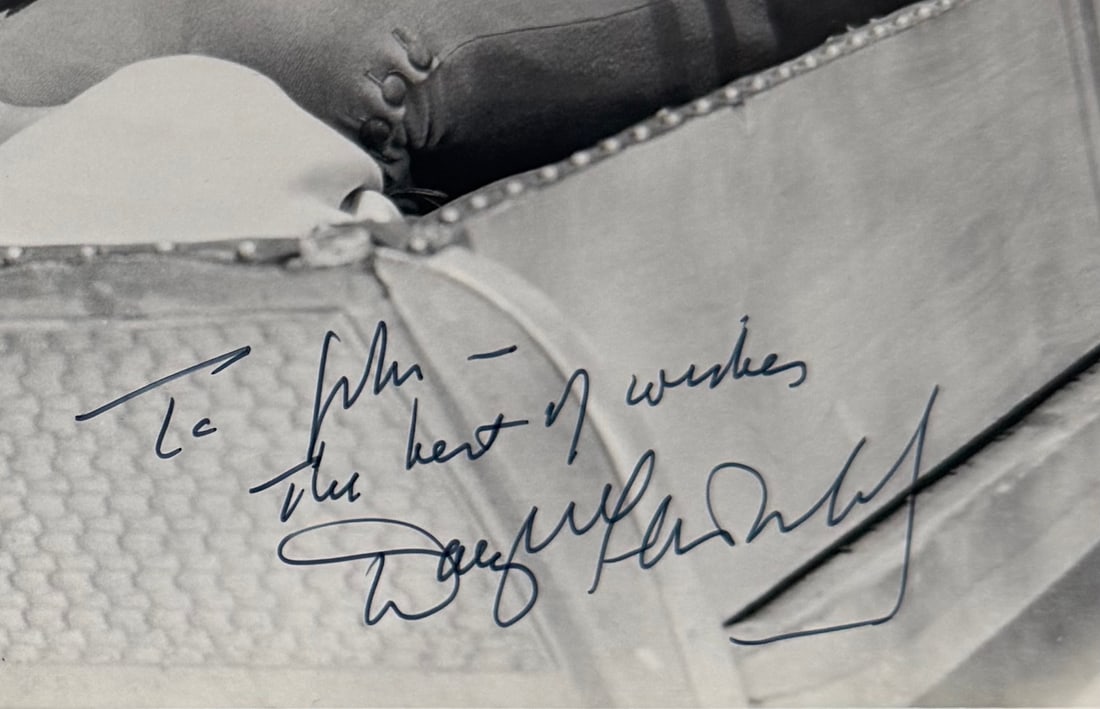 To John –
The best of wishes
Douglas Fairbanks